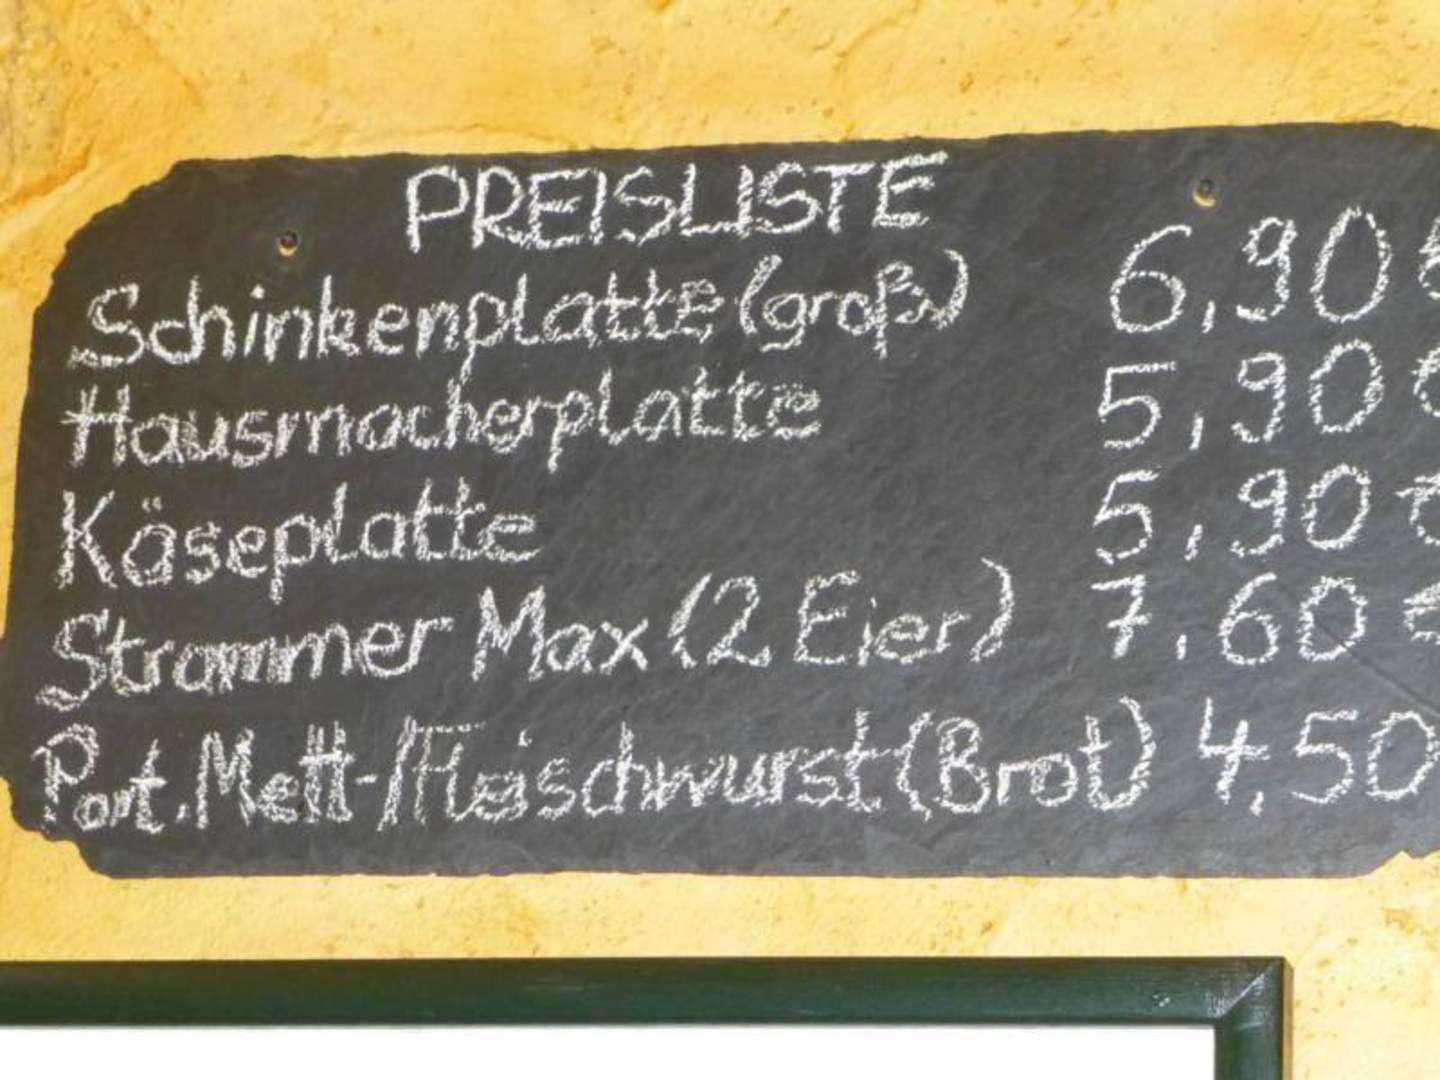 PREISLISTE
Schinkenplatte (groß) 6,90 €
Hausmacherplatte 5,90 €
Käseplatte 5,90 €
Strammer Max (2 Eier) 7.60 €
Port. Mett-/Fleischwurst (Brot) 4,50